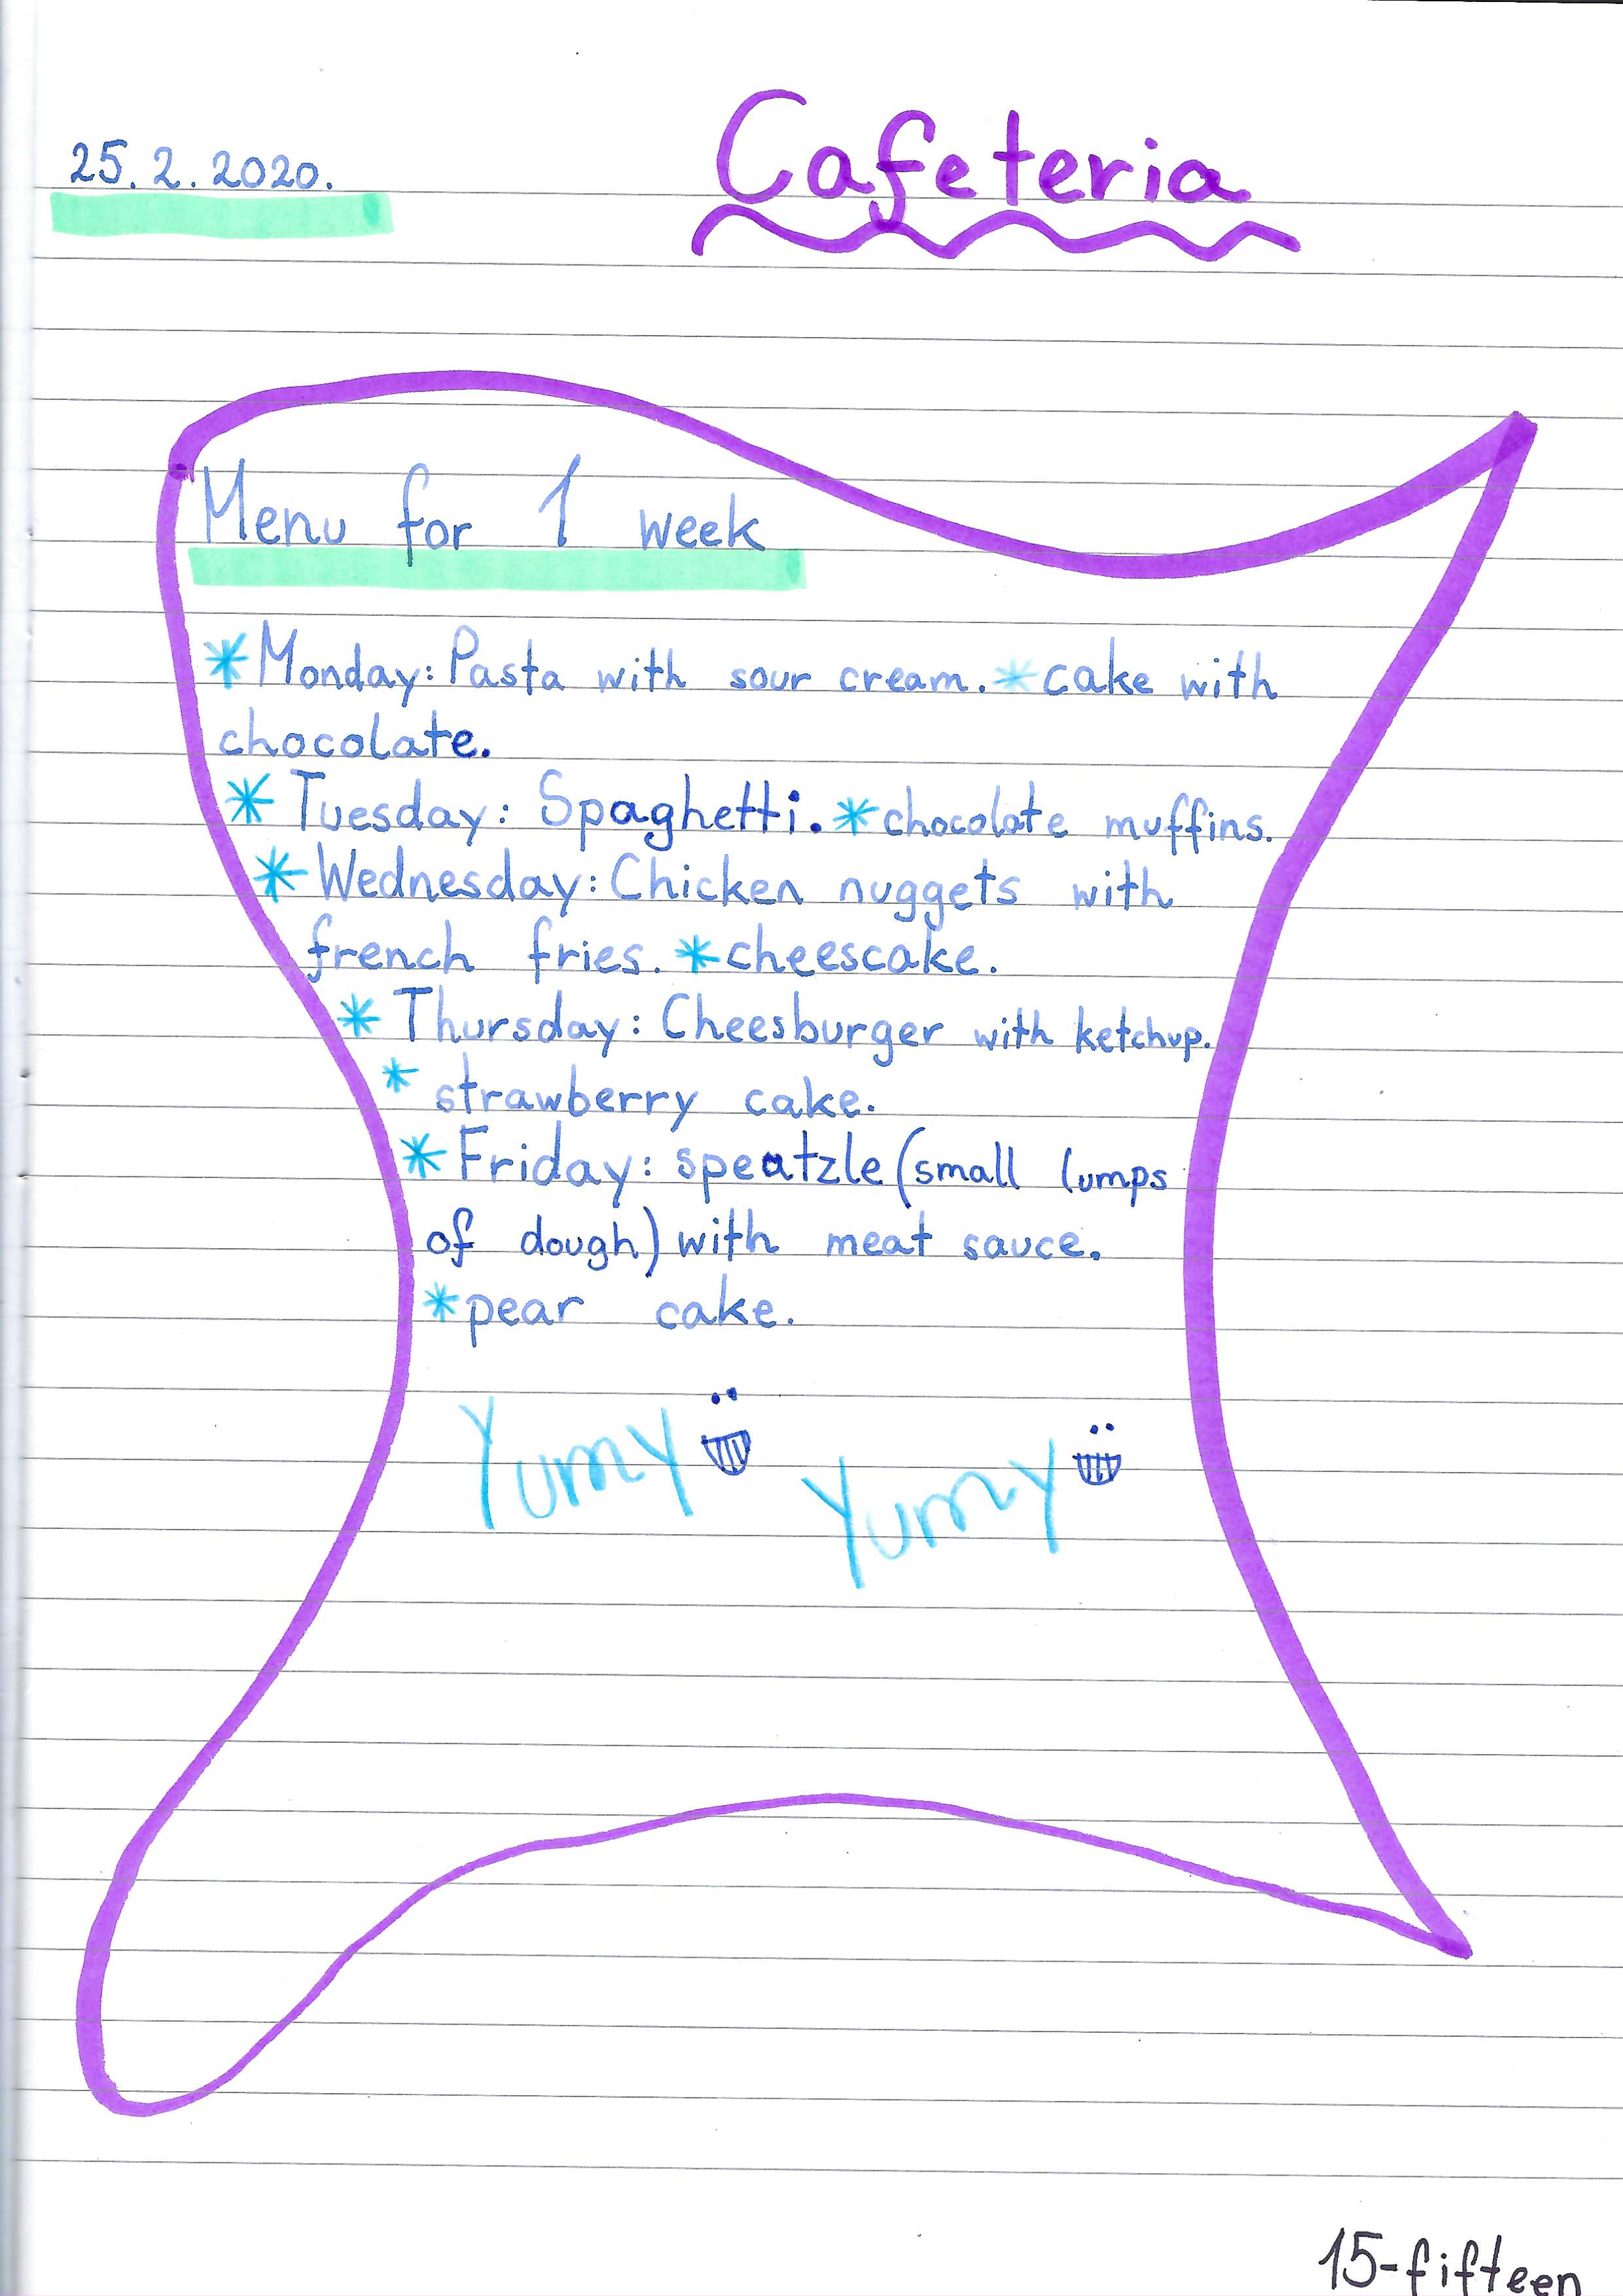 25.2.2020.
Cafeteria
Menu for 1 week
*Monday: Pasta with sour cream. *cake with
chocolate.
* Tuesday: Spaghetti. *chocolate muffins.
* Wednesday: Chicken nuggets with
french fries. *cheescake.
* Thursday: Cheesburger with ketchup.
* strawberry cake.
* Friday: speatzle (small lumps
of dough) with meat sauce.
*pear cake.
Yumy
Yumy
15-fifteen